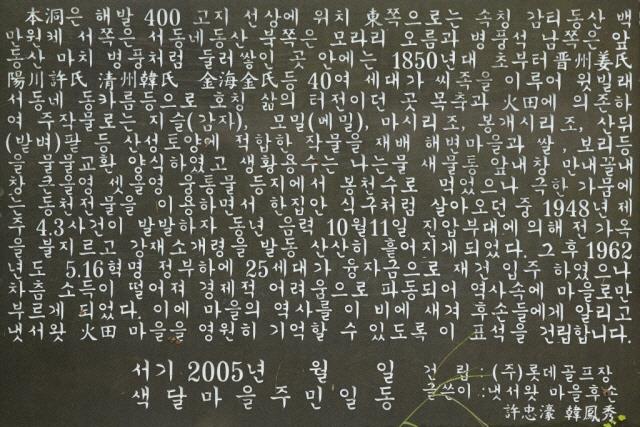 本洞은 해발 400 고지 선상에 위치 東쪽으로는 속칭 감티동산 백
마원케 서쪽은 서동네동산 북쪽은 모라리 오름과 병풍석 남쪽은 앞
동산 마치 병풍처럼 둘러쌓인 곳 안에는 1850년대 초부터 晋州姜氏
陽川許氏 清州韓氏 金海金氏등 40여 세대가 씨족을 이루어 윗빌래
서동네 동카름등으로 호칭 삶의 터전이던 곳 목축과 火田에 의존하
여 주작물로는 지슬(감자), 모밀(메밀), 마시리조, 봉개시리조, 산뒤
(발벼)팥 등 산성토양에 적합한 작물을 재배 해변마을과 쌀, 보리등
을 물물교환 양식하였고 생활용수는 나는물 새물통 앞내창 만내꼴내
창 큰물영 셋물영 궁퉁물 등지에서 봉천수로 먹었으나 극한 가뭄에
는 동천전물을 이용하면서 한집안 식구처럼 살아오던 중 1948년 제
주 4.3사건이 발발하자 동년 음력 10월11일 진압부대에 의해 전가옥
을 불지르고 강재소개령을 발동 산산히 흩어지게 되었다. 그후 1962
년도 5.16혁명 정부하에 25세대가 융자금으로 재건 입주 하였으나
차츰 소득이 떨어져 경제적 어려움으로 파동되어 역사속에 마을로만
부르게 되었다. 이에 마을의 역사를 이 비에 새겨 후손들에게 알리고
냇서왓 火田 마을을 영원히 기억할 수 있도록 이 표석을 건립합니다.
서기 2005년 월 일
색달마을주민일동
건 립 : (주)롯데골프장
글쓴이 : 냇서왓 마을후손
許忠濠 韓鳳秀